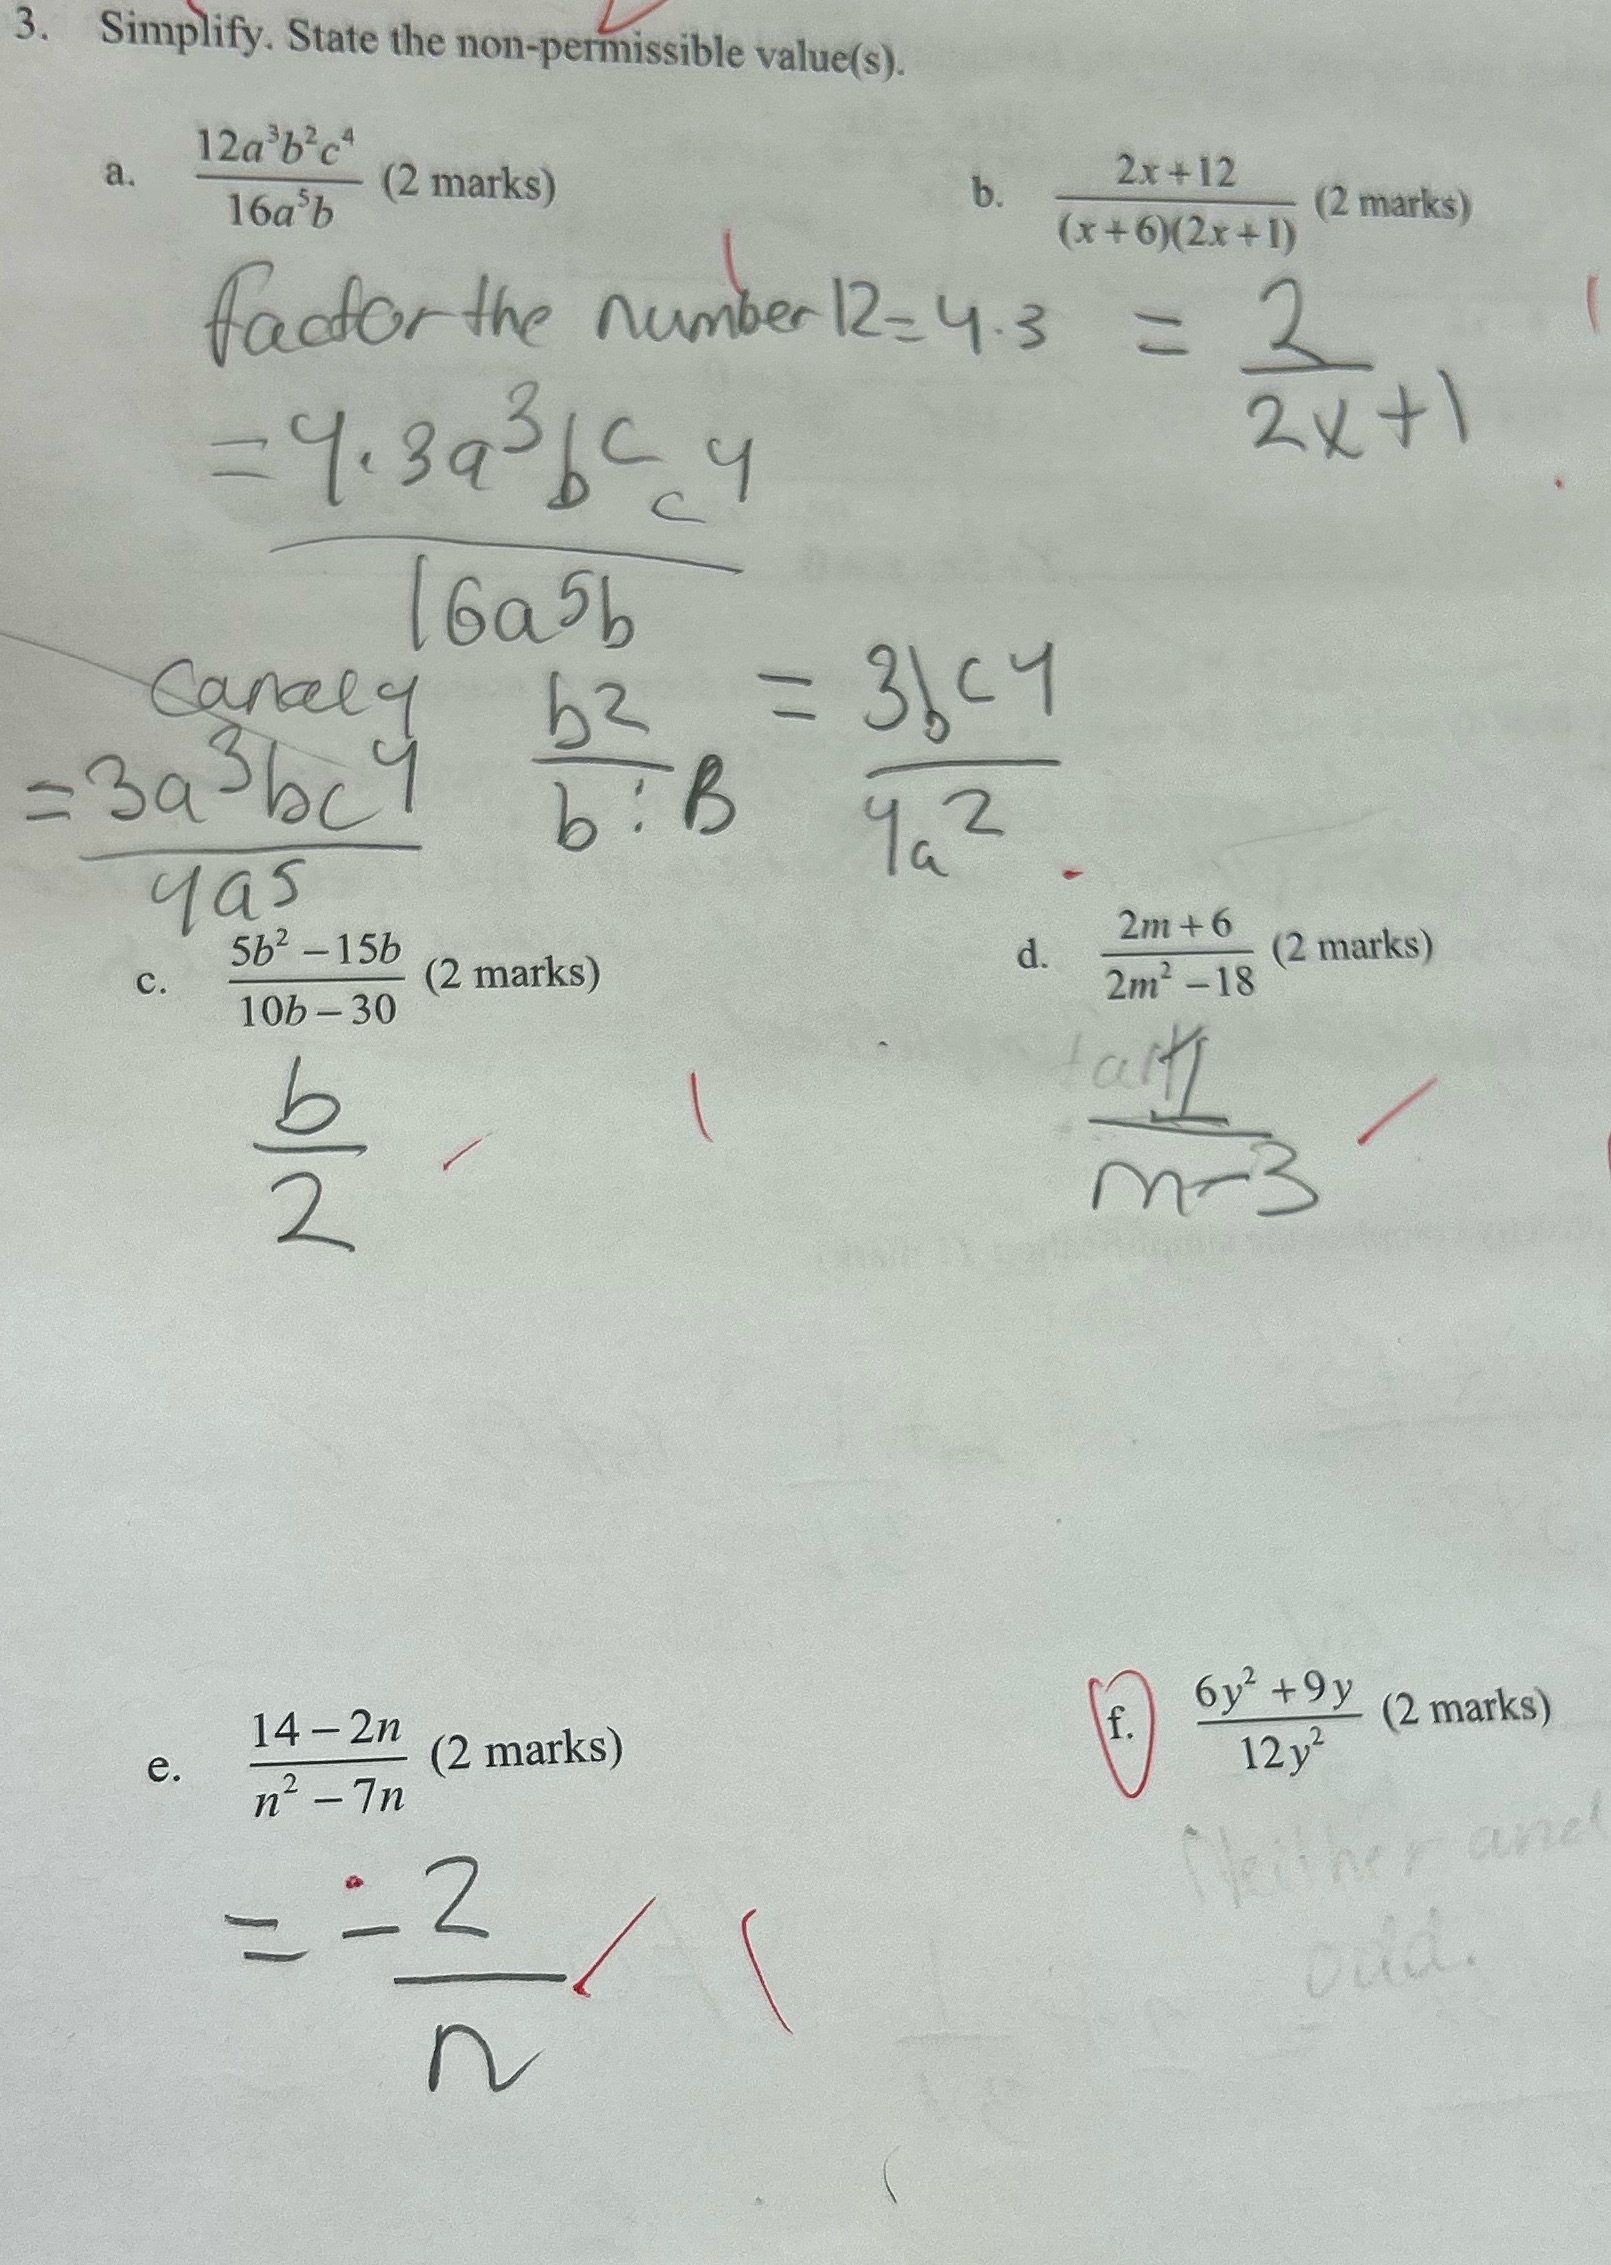 3. Simplify. State the non-permissible value(s).
a. 12a³b²c⁴ / 16a⁵b (2 marks)
b. 2x+12 / (x+6)(2x+1) (2 marks)
factor the number 12=4·3
= 4·3a³b^c c4
16a5b
= 2
2x+1
cancel 4
= 3a³bc4
4a5
b2
b : B
= 3bc4
4a2
c. 5b² – 15b / 10b – 30 (2 marks)
b
2
d. 2m+6 / 2m² – 18 (2 marks)
1
m-3
e. 14 – 2n / n² – 7n (2 marks)
= -2
n
f. 6y² + 9y / 12y² (2 marks)
Neither and
odd.